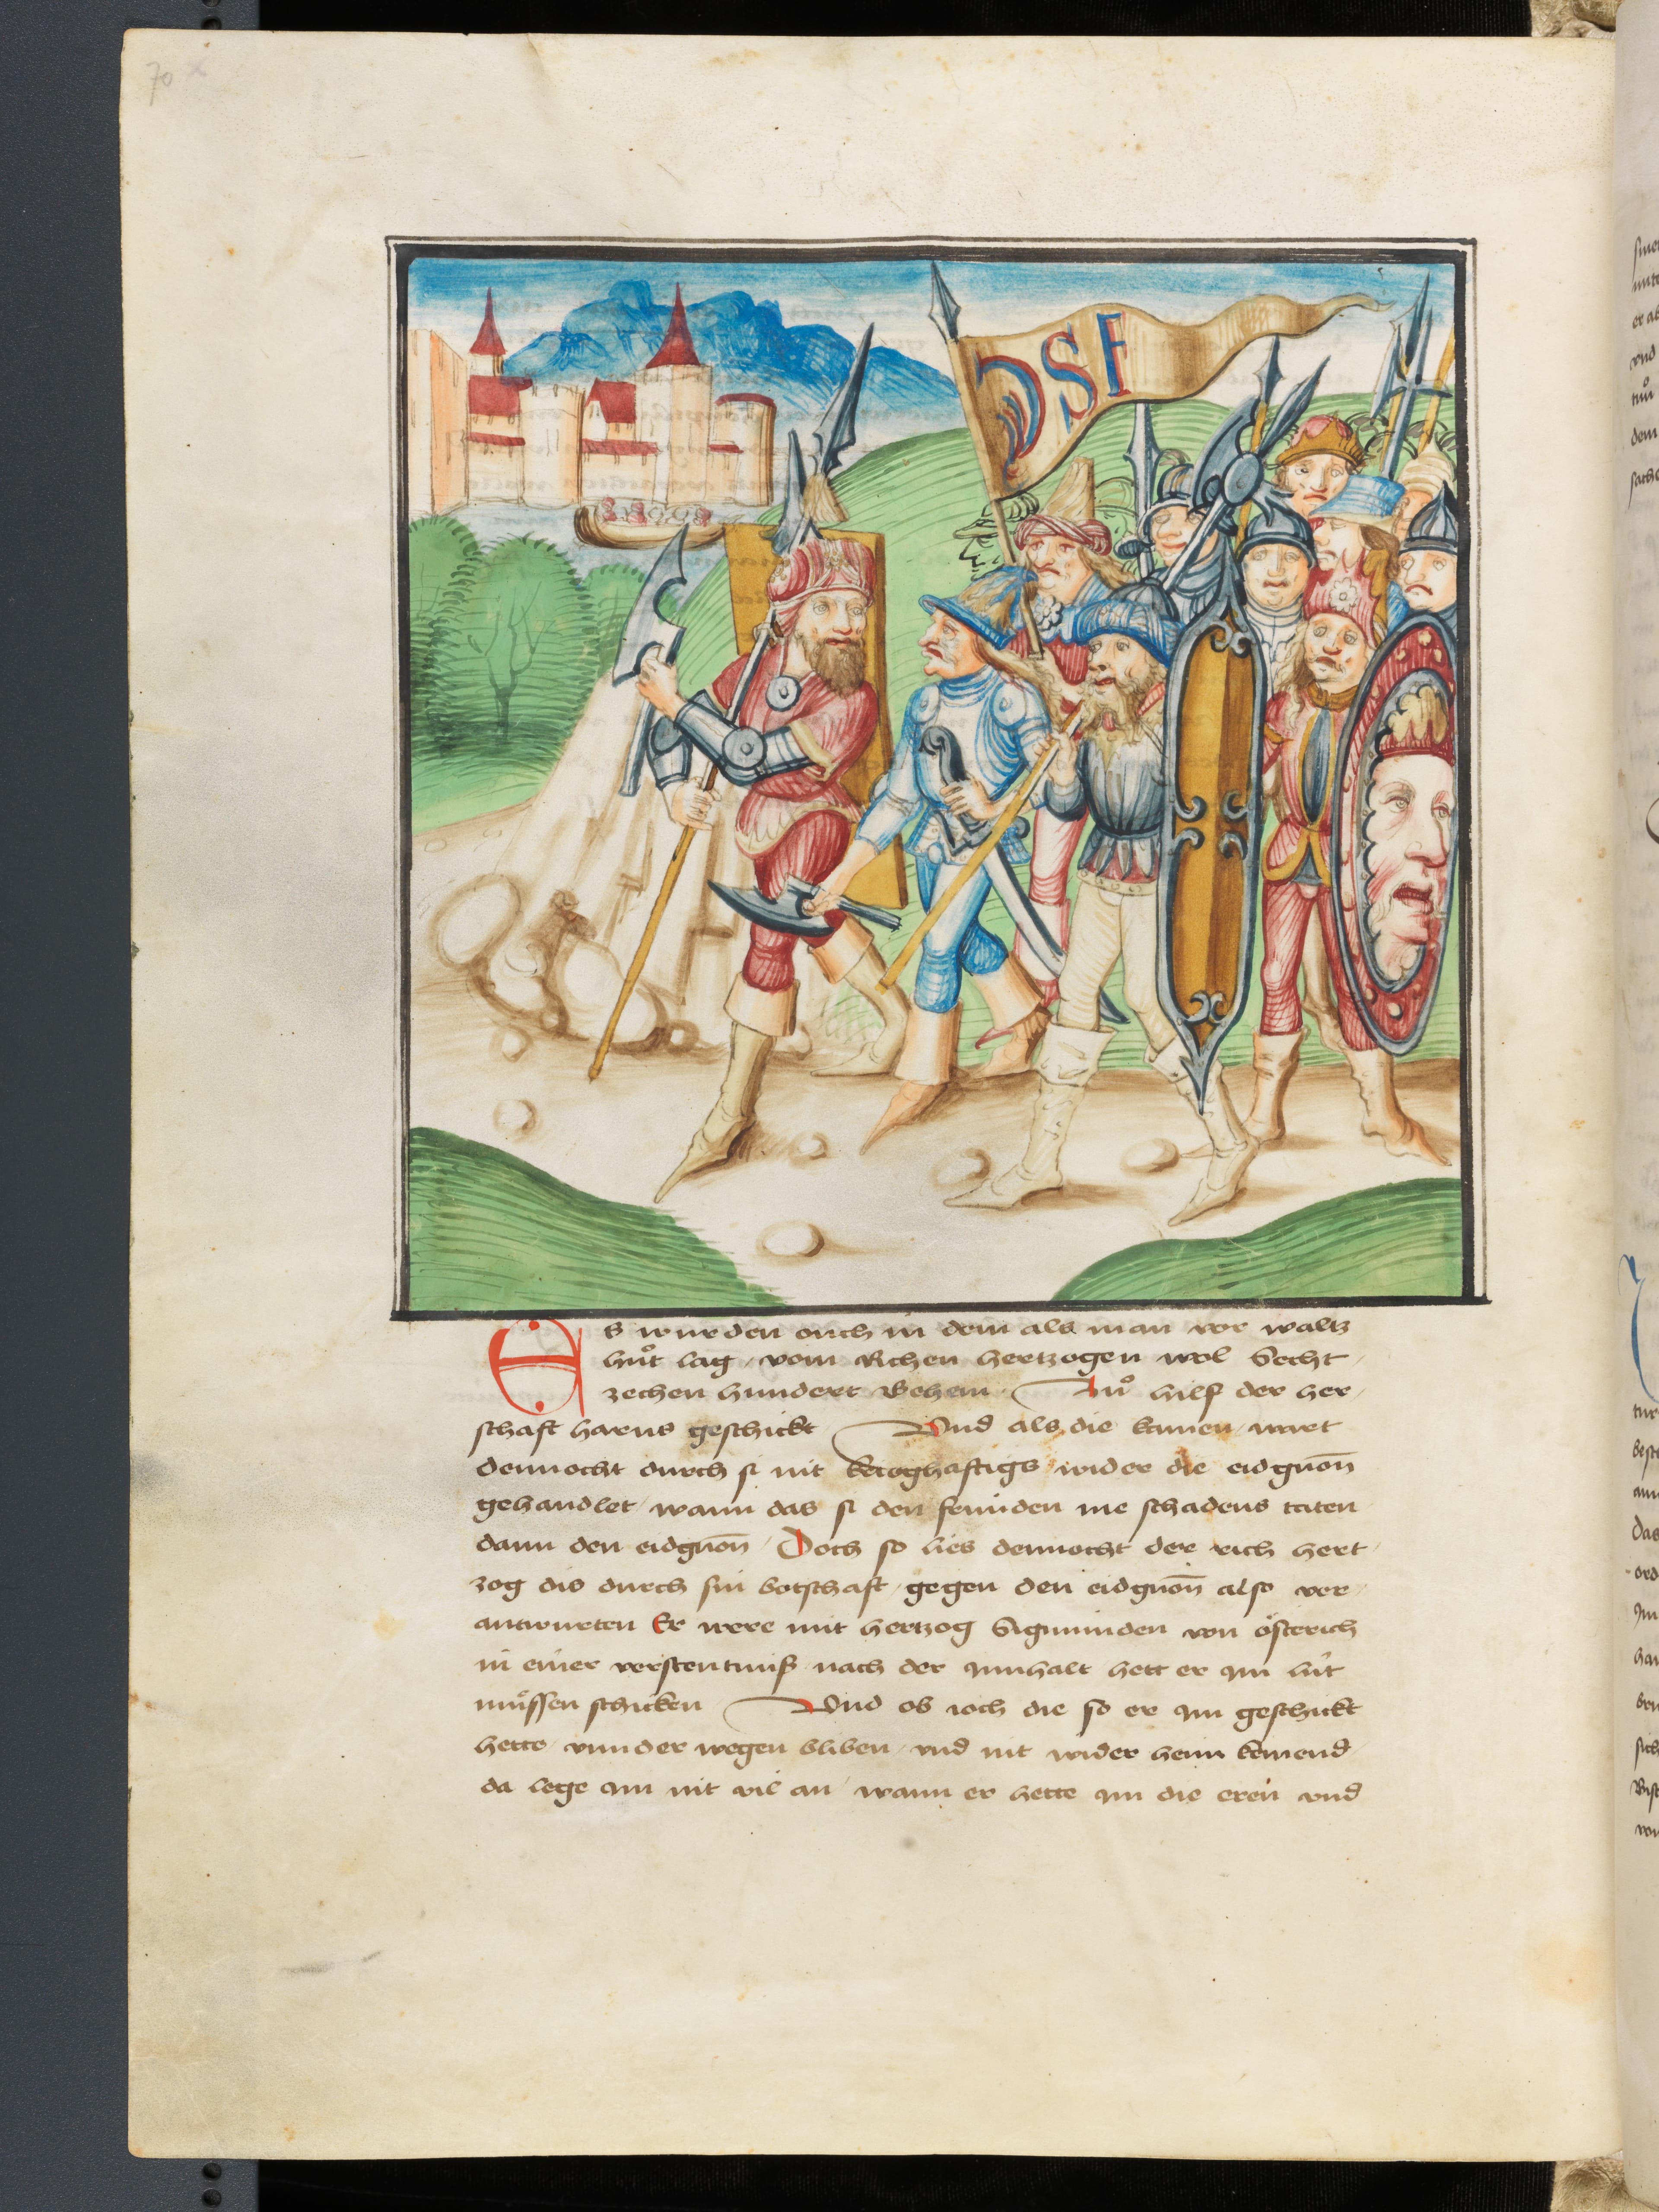 70
DSF
Es wurden ouch in dem als man vor waltz
huͦt lag / vom Richen hertzogen wol Secht /
zechen hundert Behem · Zuͦ hilf der her /
schaft harus geschickt Vnd als die kamen / wart
dennocht durch si nit / wider die eidgnon̄
gehandlet / wann das si den frnͥden me schadens taten
dann den eidgnon̄ / Doch so lies dennocht der rich hert /
zog dis durch sin botschaft / gegen den eidgnon̄ also ver /
antwurten Er were mit hertzog Sigmunden von oͤsterich
in einer verstentniß nach der Innhalt hett er Im luͥt
muͤssen schicken Vnd ob ioch die so er Im geschickt
hette / vnnder wegen bliben / vnd nit wider heim kemend /
da lege Im nit vil an / wann er hette Im die eren vnd